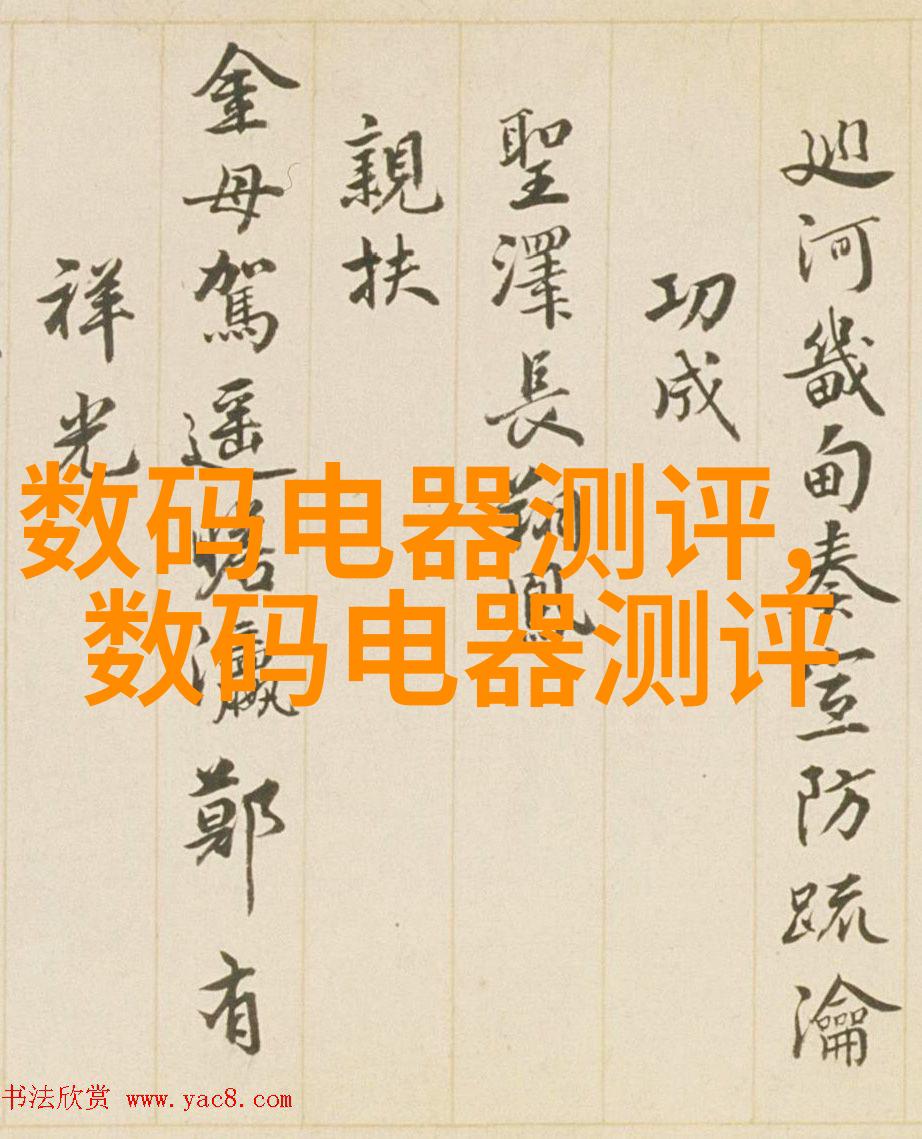 廵河畿甸奏宣防疏瀹
功成
聖澤長翔
親扶
金母駕遥瀛鄭有
祥光
数码电器测评,
数码电器测评
书法欣赏 www.yac8.com